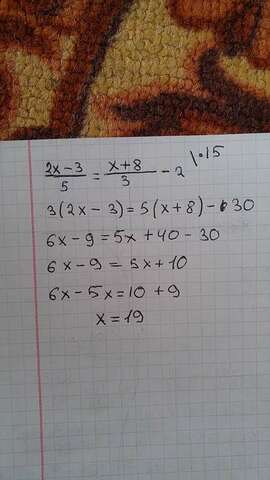 (2x-3)/5 = (x+8)/3 - 2 \·15
3(2x-3)=5(x+8)-30
6x-9=5x+40-30
6x-9=5x+10
6x-5x=10+9
x=19